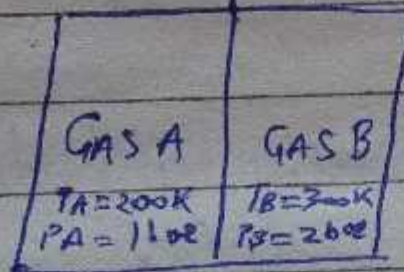 GAS A GAS B
TA=200K TB=300K
PA=1bar PB=2bar